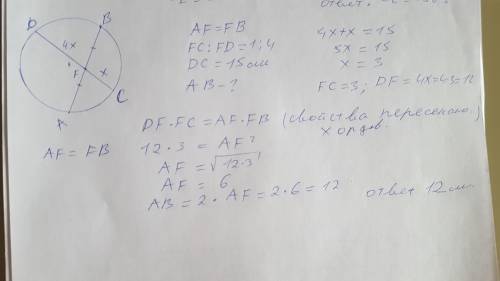 ответ.
D
B
4x
F
x
C
A
AF=FB
FC:FD=1:4
DC=15см
AB-?
4x+x=15
5x=15
x=3
FC=3; DF=4x=4·3=12
DF·FC=AF·FB (свойства пересекающ.)
хорды.
AF=FB
12·3=AF²
AF=√12·3
AF=6
AB=2·AF=2·6=12
ответ 12см.